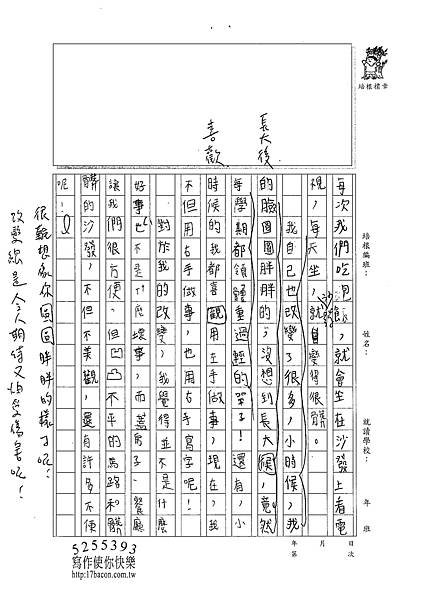 培根標章
培根編班：
姓名：
就讀學校：
年 班
第 年 月 次 日
每次我們吃泡飯，就會坐在沙發上看電
視，每天坐，沙發就自變得很髒。
我自己也改變了很多，小時候，我
的臉圓圓胖胖的，沒想到長大候，竟然
每學期都領體重過輕的單子！還有，小
時候的我都喜觀用左手做事，現在，我
不但用右手做事，也用右手寫字呢！
對於我的改變，我覺得並不是什麼
好事也不是什麼壞事，而蓋房子、餐廳
讓我們很方便，但凹凸不平的馬路和髒
髒的沙發，不但不美觀，還有許多不便
呢！
長大後
喜歡
很難想像你圓圓胖胖的樣子呢！
改變總是令人期待又怕受傷害呢！
5255393
寫作使你快樂
http://17bacon.com.tw